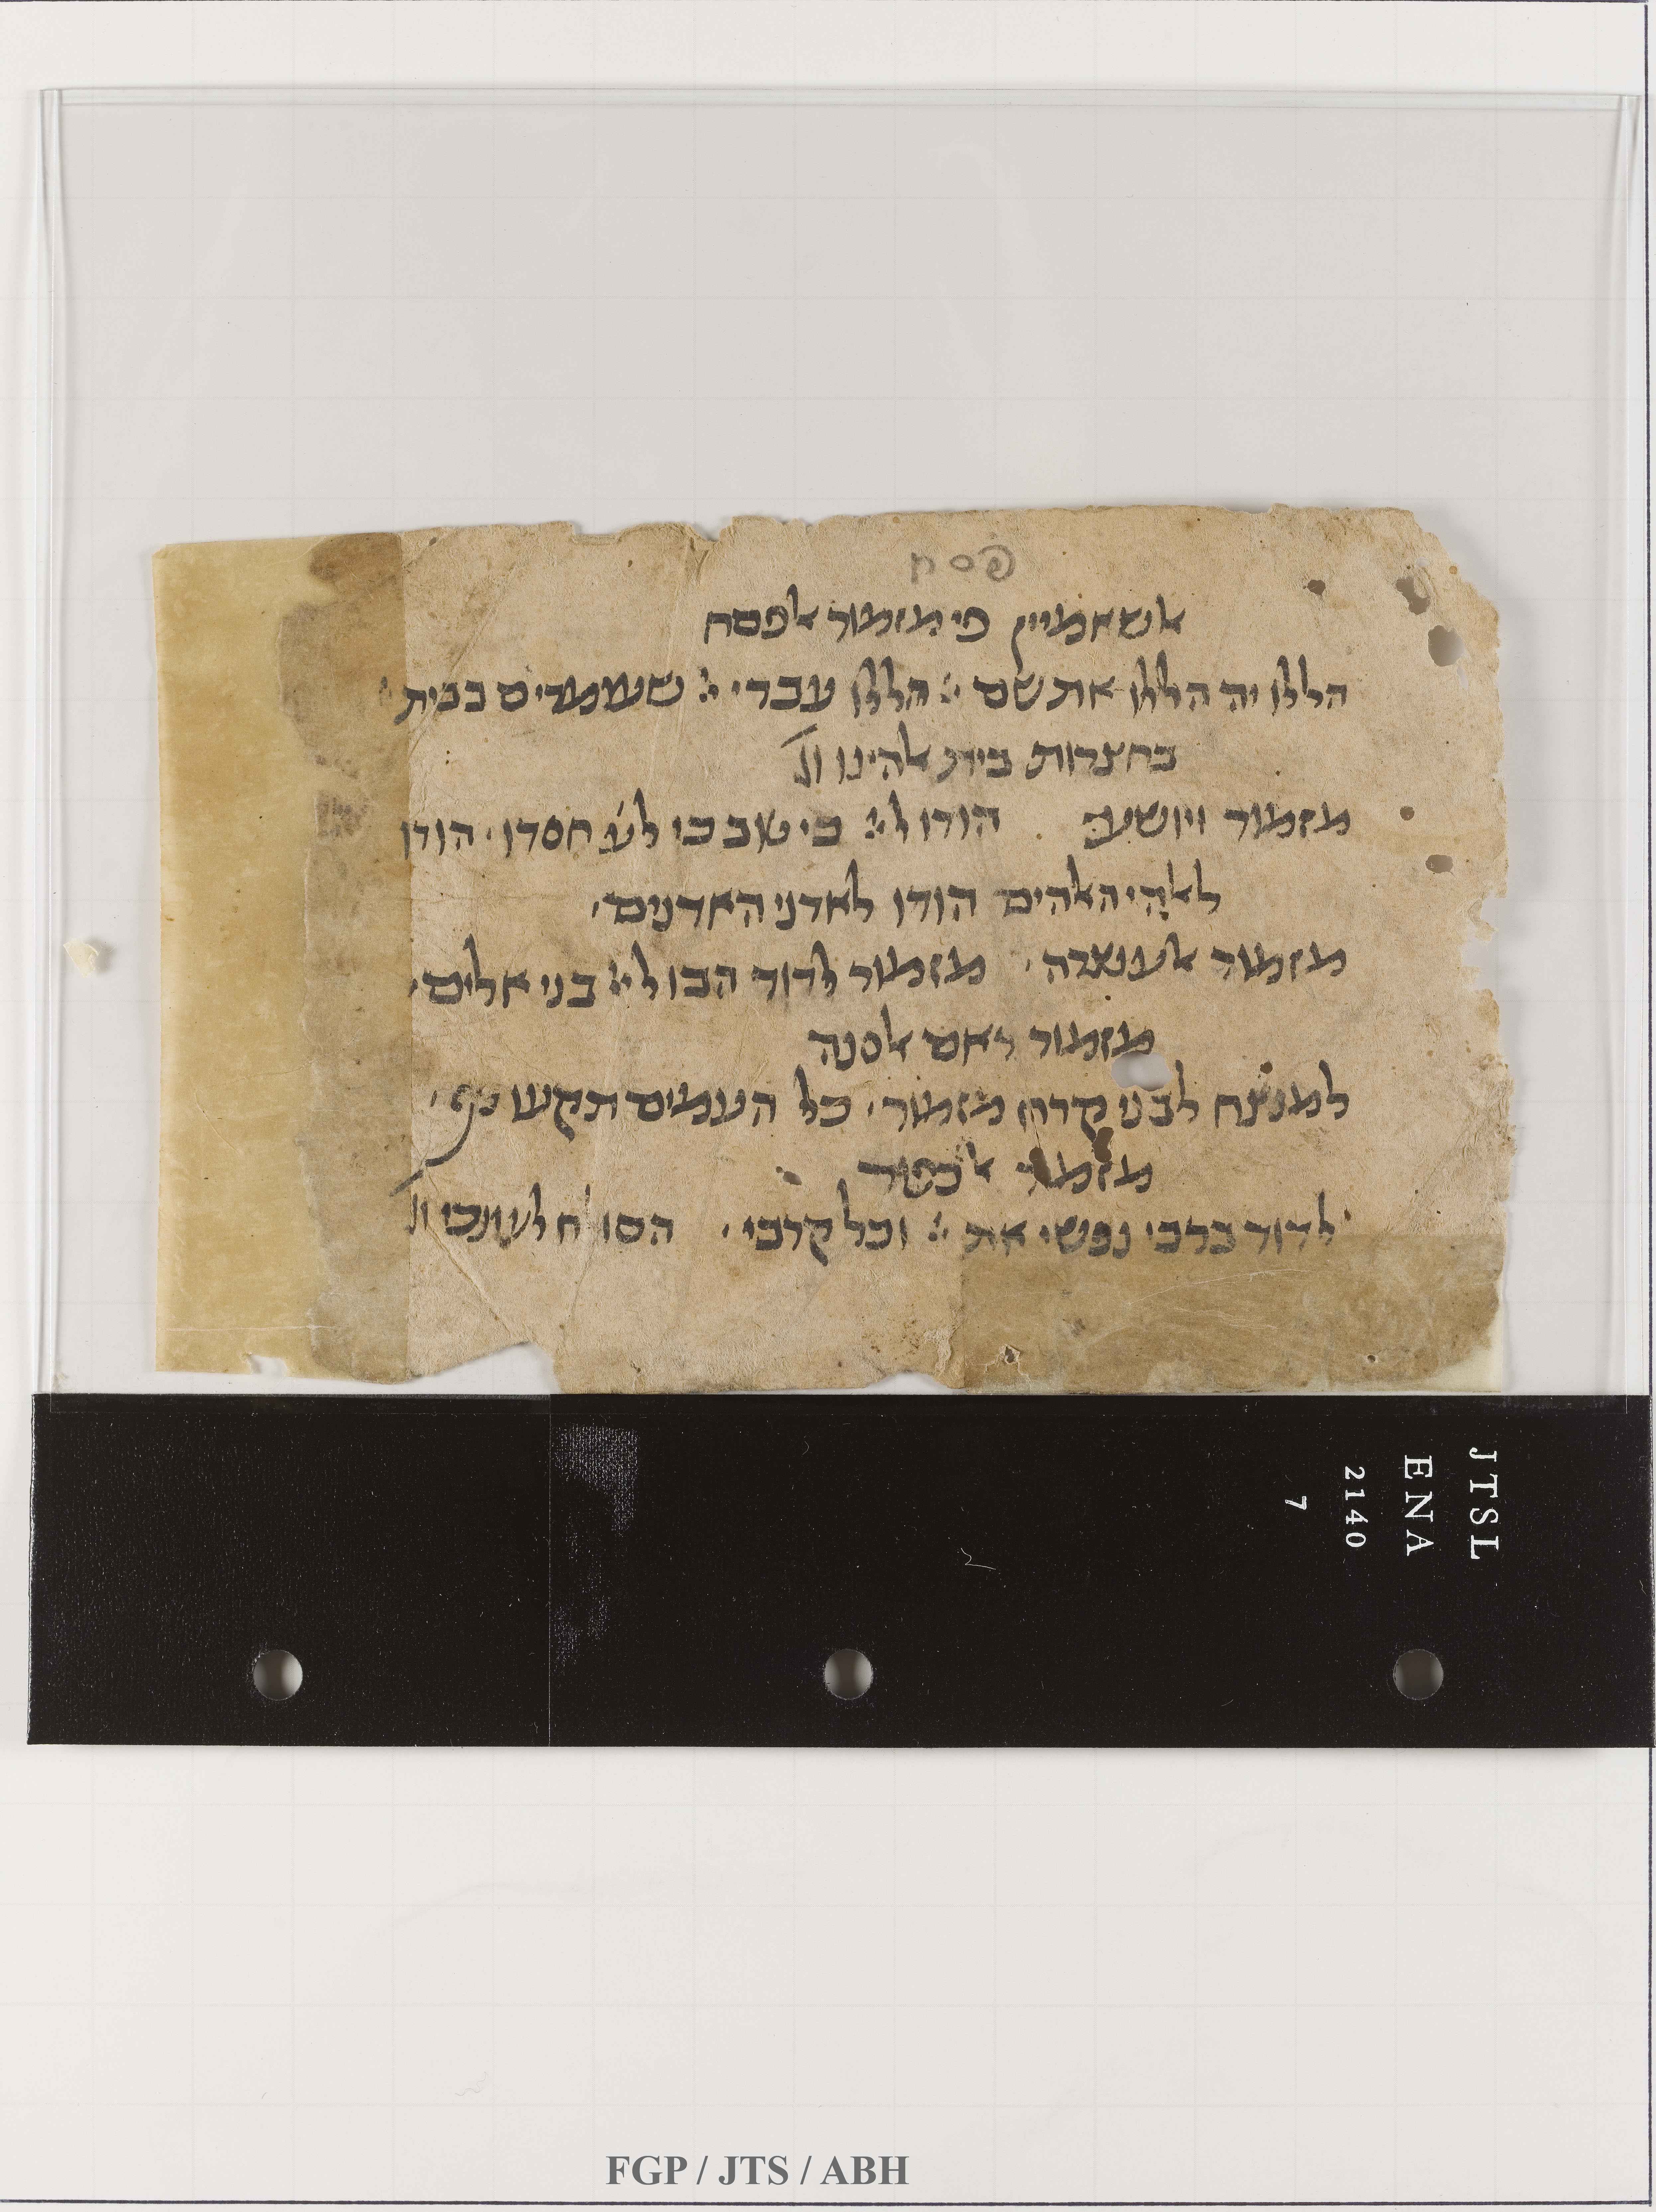 פסח
אשאמיין פי מזמור אלפסח
הללו יה הללו את שם ייי הללו עבדי ייי שעומדים בבית
בחצרות בית אלהינו
מזמור ויושע הודו לייי כי טוב כי לע חסדו הודו
לאלהי האלהים הודו לאדני האדנים
מזמור אלעצרה מזמור לדוד הבו לייי בני אלים
מזמור ראס אלסנה
למנצח לבני קרח מזמור כל העמים תקעו כף
מזמור אלכפור
לדוד ברכי נפשי את ייי וכל קרבי הסולח לעונכי
JTSL
ENA
2140
7
FGP / JTS / ABH